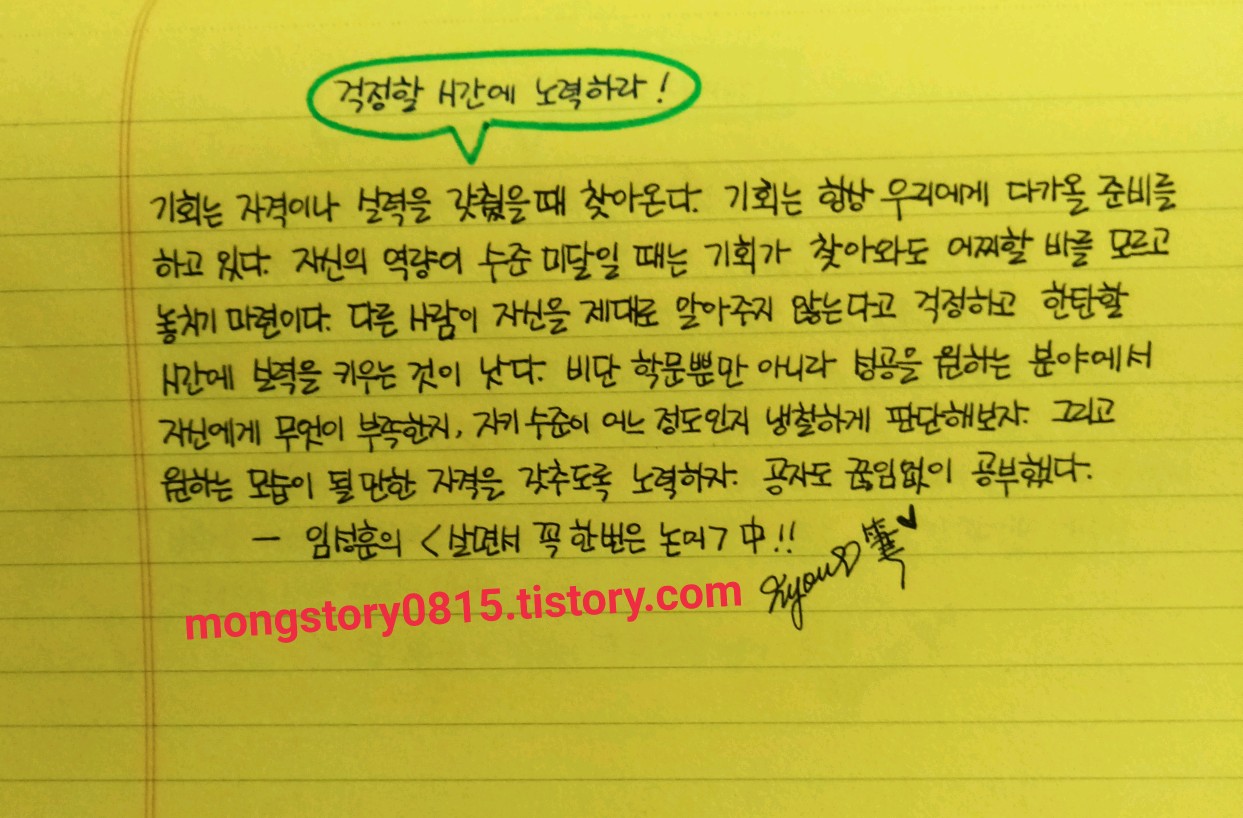 걱정할 시간에 노력하라!
기회는 자격이나 실력을 갖췄을때 찾아온다. 기회는 항상 우리에게 다가올 준비를
하고 있다. 자신의 역량이 수준 미달일 때는 기회가 찾아와도 어찌할 바를 모르고
놓치기 마련이다. 다른 사람이 자신을 제대로 알아주지 않는다고 걱정하고 한탄할
시간에 실력을 키우는 것이 낫다. 비단 학문뿐만 아니라 성공을 원하는 분야에서
자신에게 무엇이 부족한지, 자키 수준이 어느 정도인지 냉철하게 판단해보자. 그리고
원하는 모습이 될 만한 자격을 갖추도록 노력하자. 공자도 끊임없이 공부했다.
- 임성훈의 <살면서 꼭 한번은 논어> 中!!
mongstory0815.tistory.com